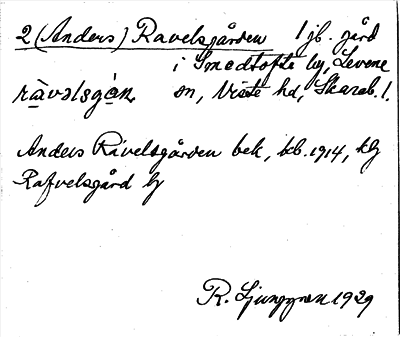 2 (Anders) Ravelsgården 1 jb. gård
i Smedtofta by, Levene
ràvəlsgàn. sn, Viste hd, Skarab. l.
Anders Ravelsgården bek, kb. 1914, kg
Rafvelsgård by
R. Ljunggren 1929